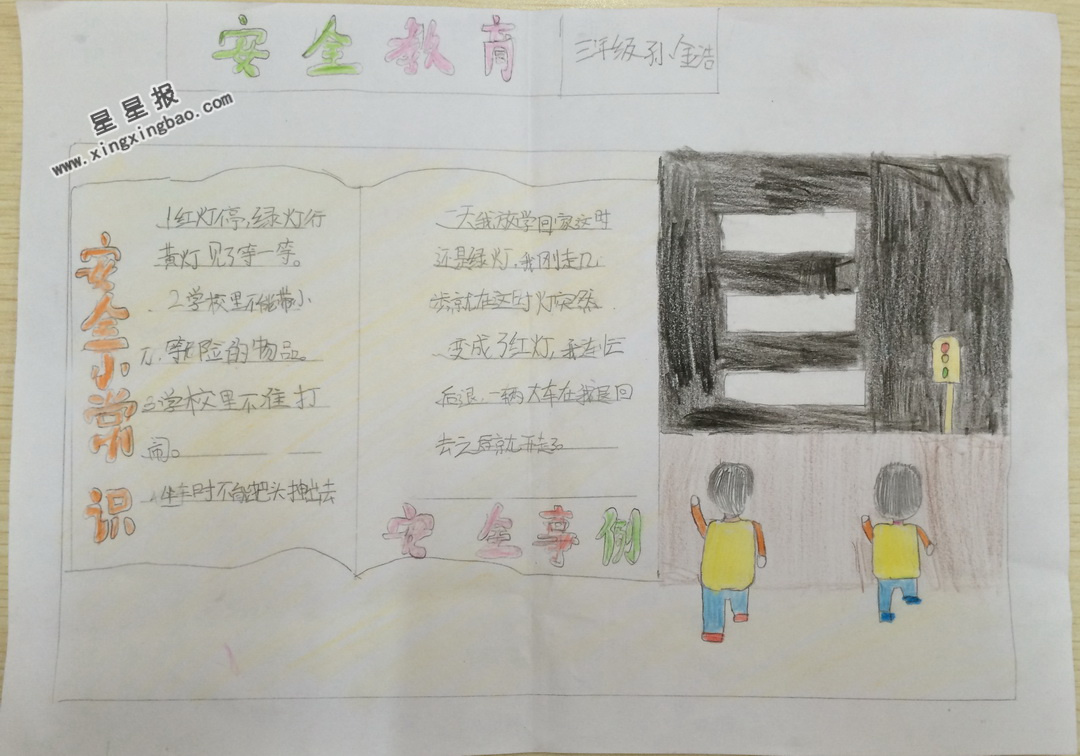 安全教育
三年级孙金浩
星星报
www.xingxingbao.com
安全小常识
1红灯停,绿灯行
黄灯见了等一等。
2学校里不能带小
刀.等危险的物品。
3学校里不准打
闹。
4坐车时不能把头抻出去
一天我放学回家这时
还是绿灯,我刚走几
步就在这时灯突然
变成了红灯,我赶忙
后退,一辆大车在我退回
去之后就开走了
安全事例